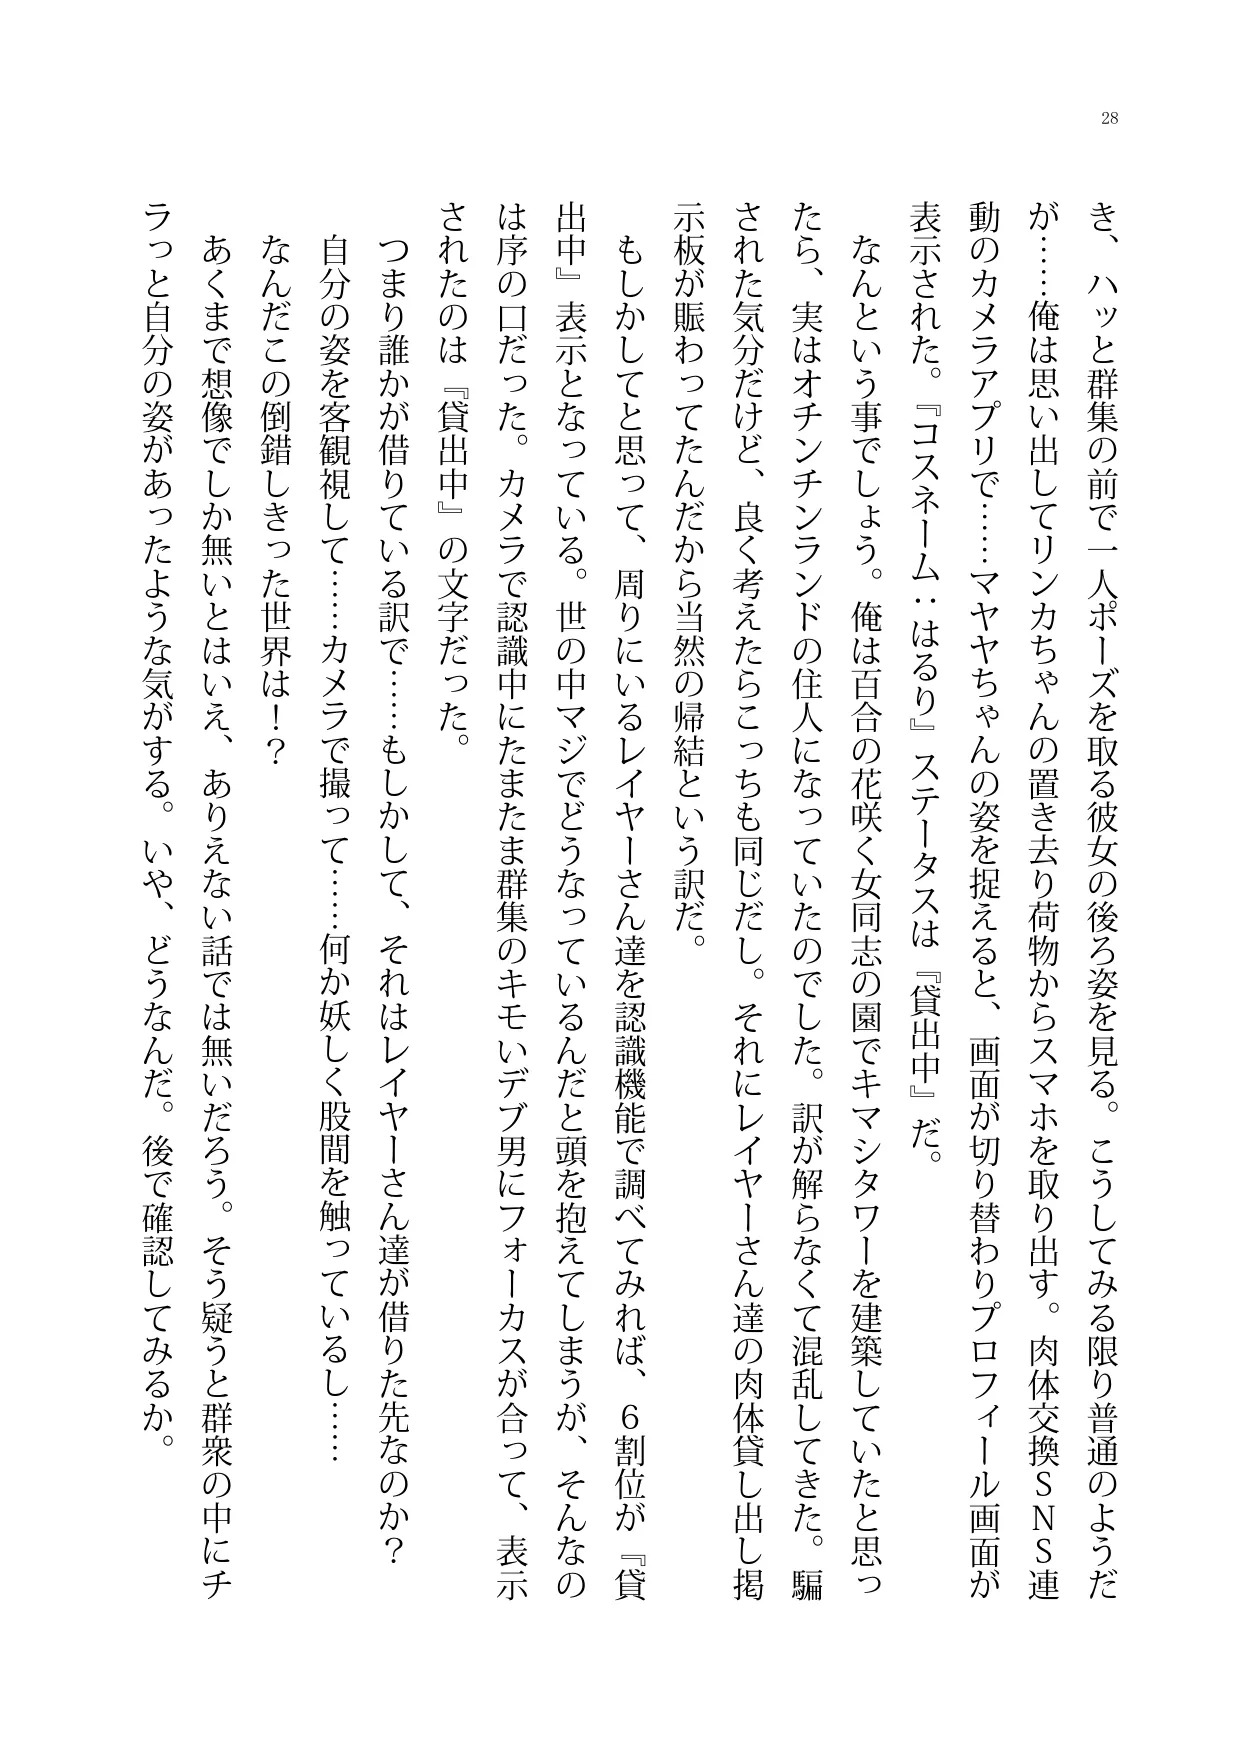 28
き、ハッと群集の前で一人ポーズを取る彼女の後ろ姿を見る。こうしてみる限り普通のようだ
が……俺は思い出してリンカちゃんの置き去り荷物からスマホを取り出す。肉体交換ＳＮＳ連
動のカメラアプリで……マヤヤちゃんの姿を捉えると、画面が切り替わりプロフィール画面が
表示された。『コスネーム：はるり』ステータスは『貸出中』だ。
なんという事でしょう。俺は百合の花咲く女同志の園でキマシタワーを建築していたと思っ
たら、実はオチンチンランドの住人になっていたのでした。訳が解らなくて混乱してきた。騙
された気分だけど、良く考えたらこっちも同じだし。それにレイヤーさん達の肉体貸し出し掲
示板が賑わってたんだから当然の帰結という訳だ。
もしかしてと思って、周りにいるレイヤーさん達を認識機能で調べてみれば、６割位が『貸
出中』表示となっている。世の中マジでどうなっているんだと頭を抱えてしまうが、そんなの
は序の口だった。カメラで認識中にたまたま群集のキモいデブ男にフォーカスが合って、表示
されたのは『貸出中』の文字だった。
つまり誰かが借りている訳で……もしかして、それはレイヤーさん達が借りた先なのか？
自分の姿を客観視して……カメラで撮って……何か妖しく股間を触っているし……
なんだこの倒錯しきった世界は！？
あくまで想像でしか無いとはいえ、ありえない話では無いだろう。そう疑うと群衆の中にチ
ラっと自分の姿があったような気がする。いや、どうなんだ。後で確認してみるか。